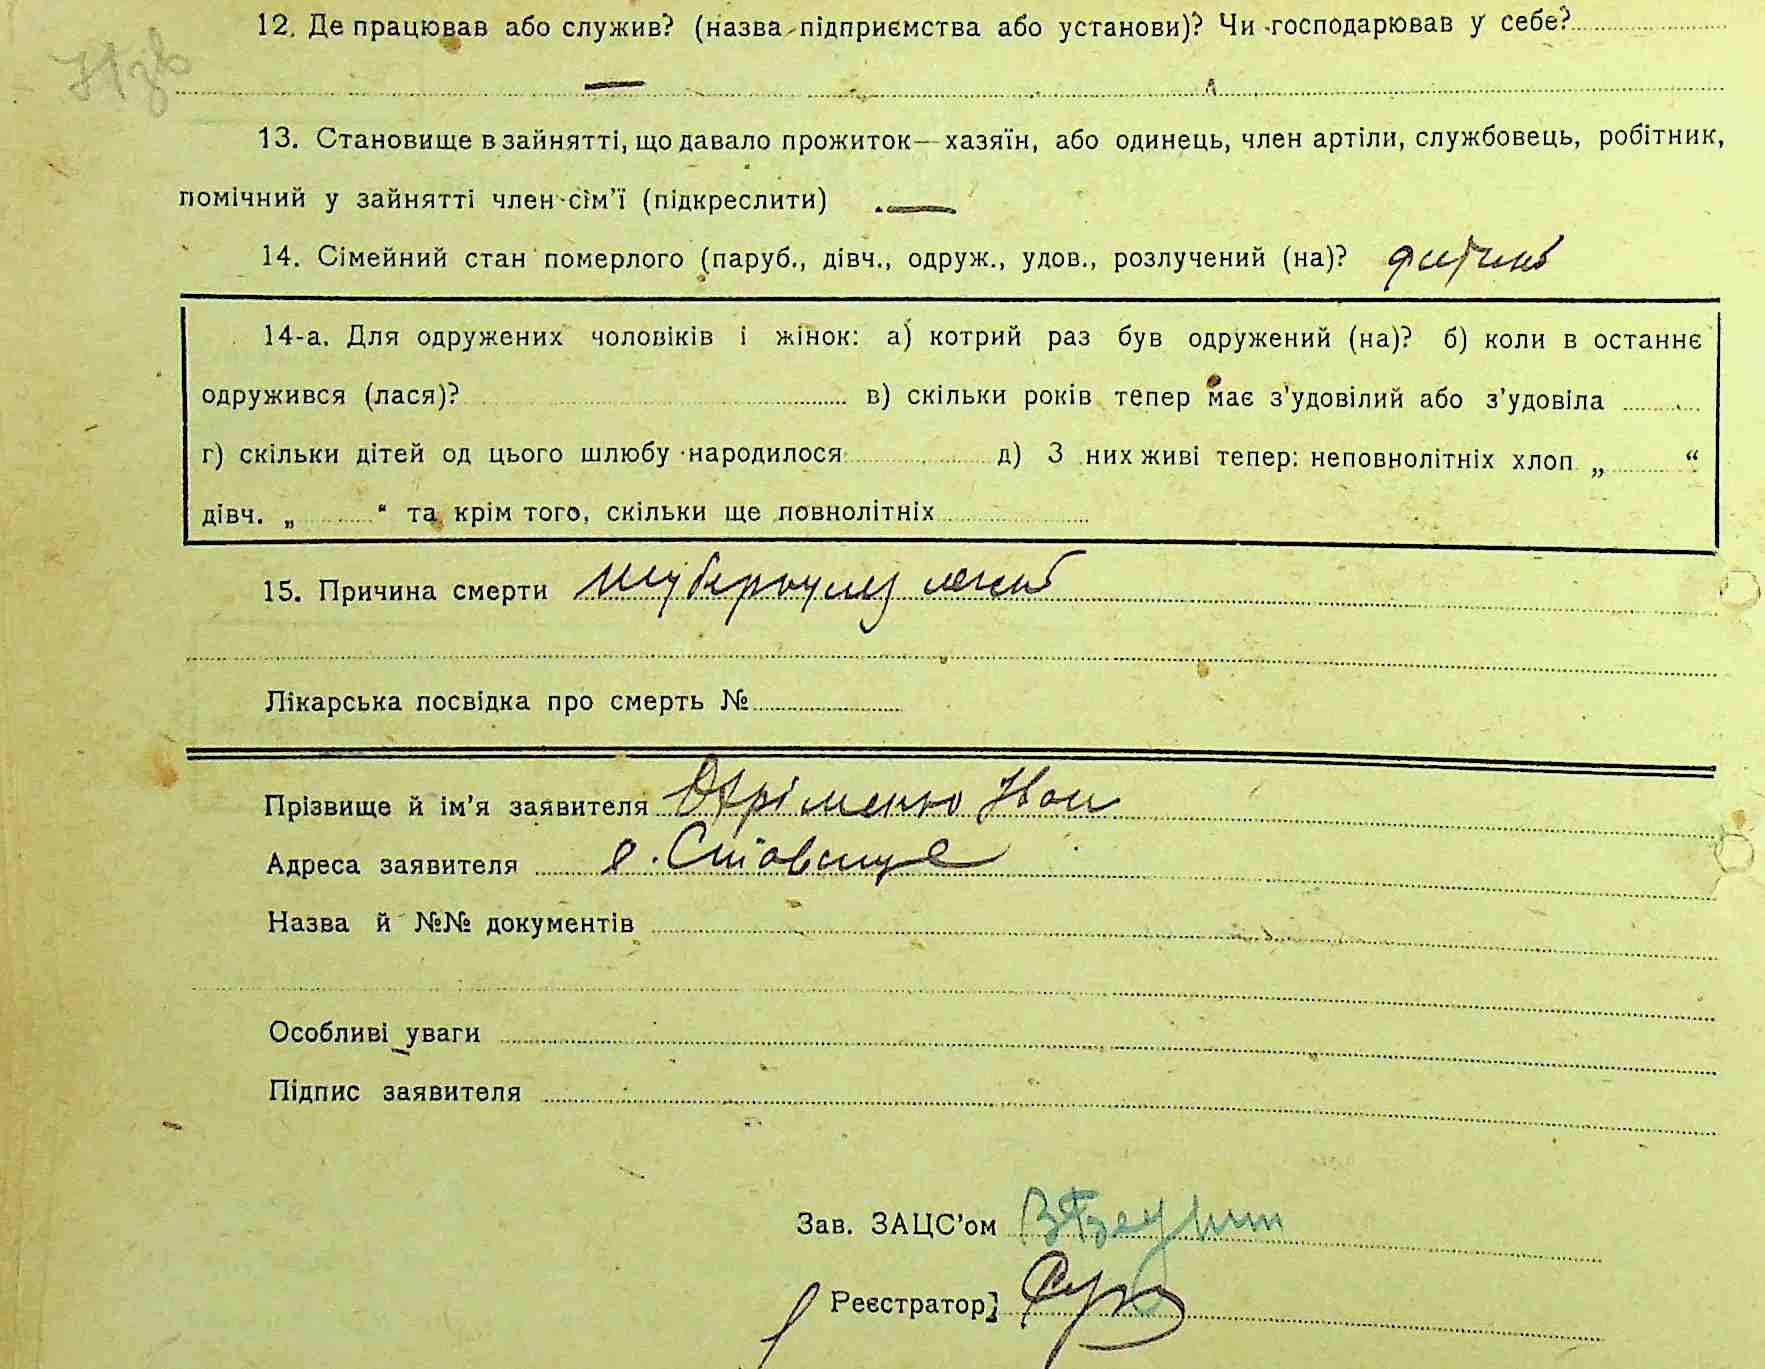 12. Де працював або служив? (назва підприємства або установи)? Чи господарював у себе?
—
13. Становище в зайнятті, що давало прожиток—хазяїн, або одинець, член артіли, службовець, робітник,
помічний у зайнятті член сім'ї (підкреслити) —
14. Сімейний стан померлого (паруб., дівч., одруж., удов., розлучений (на)? дитина
14-а. Для одружених чоловіків і жінок: а) котрий раз був одружений (на)? б) коли в останнє
одружився (лася)? в) скільки років тепер має з'удовілий або з'удовіла
г) скільки дітей од цього шлюбу народилося д) З них живі тепер: неповнолітніх хлоп „ “
дівч. „ “ та крім того, скільки ще повнолітніх
15. Причина смерти туберкульоз легенів
Лікарська посвідка про смерть №
Прізвище й ім'я заявителя Охріменко Іван
Адреса заявителя с. Ставище
Назва й №№ документів
Особливі уваги
Підпис заявителя
Зав. ЗАЦС'ом
Реєстратор